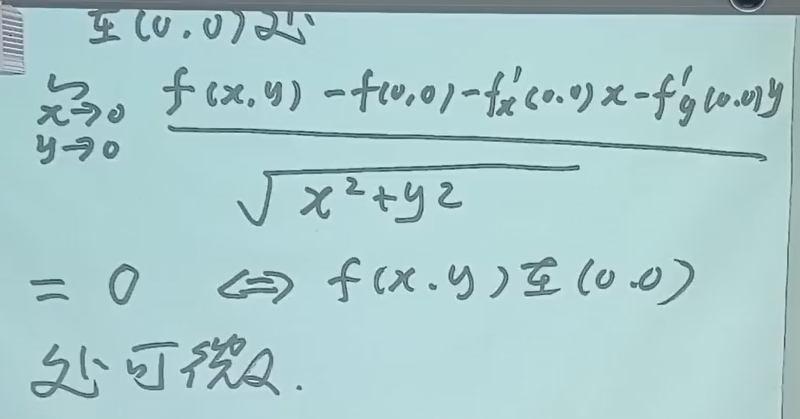 在(0.0)处
lim f(x,y)-f(0,0)-f'x(0.0)x-f'y(0.0)y
x→0
y→0
√x²+y²
= 0 ⇔ f(x.y)在(0.0)
处可微.